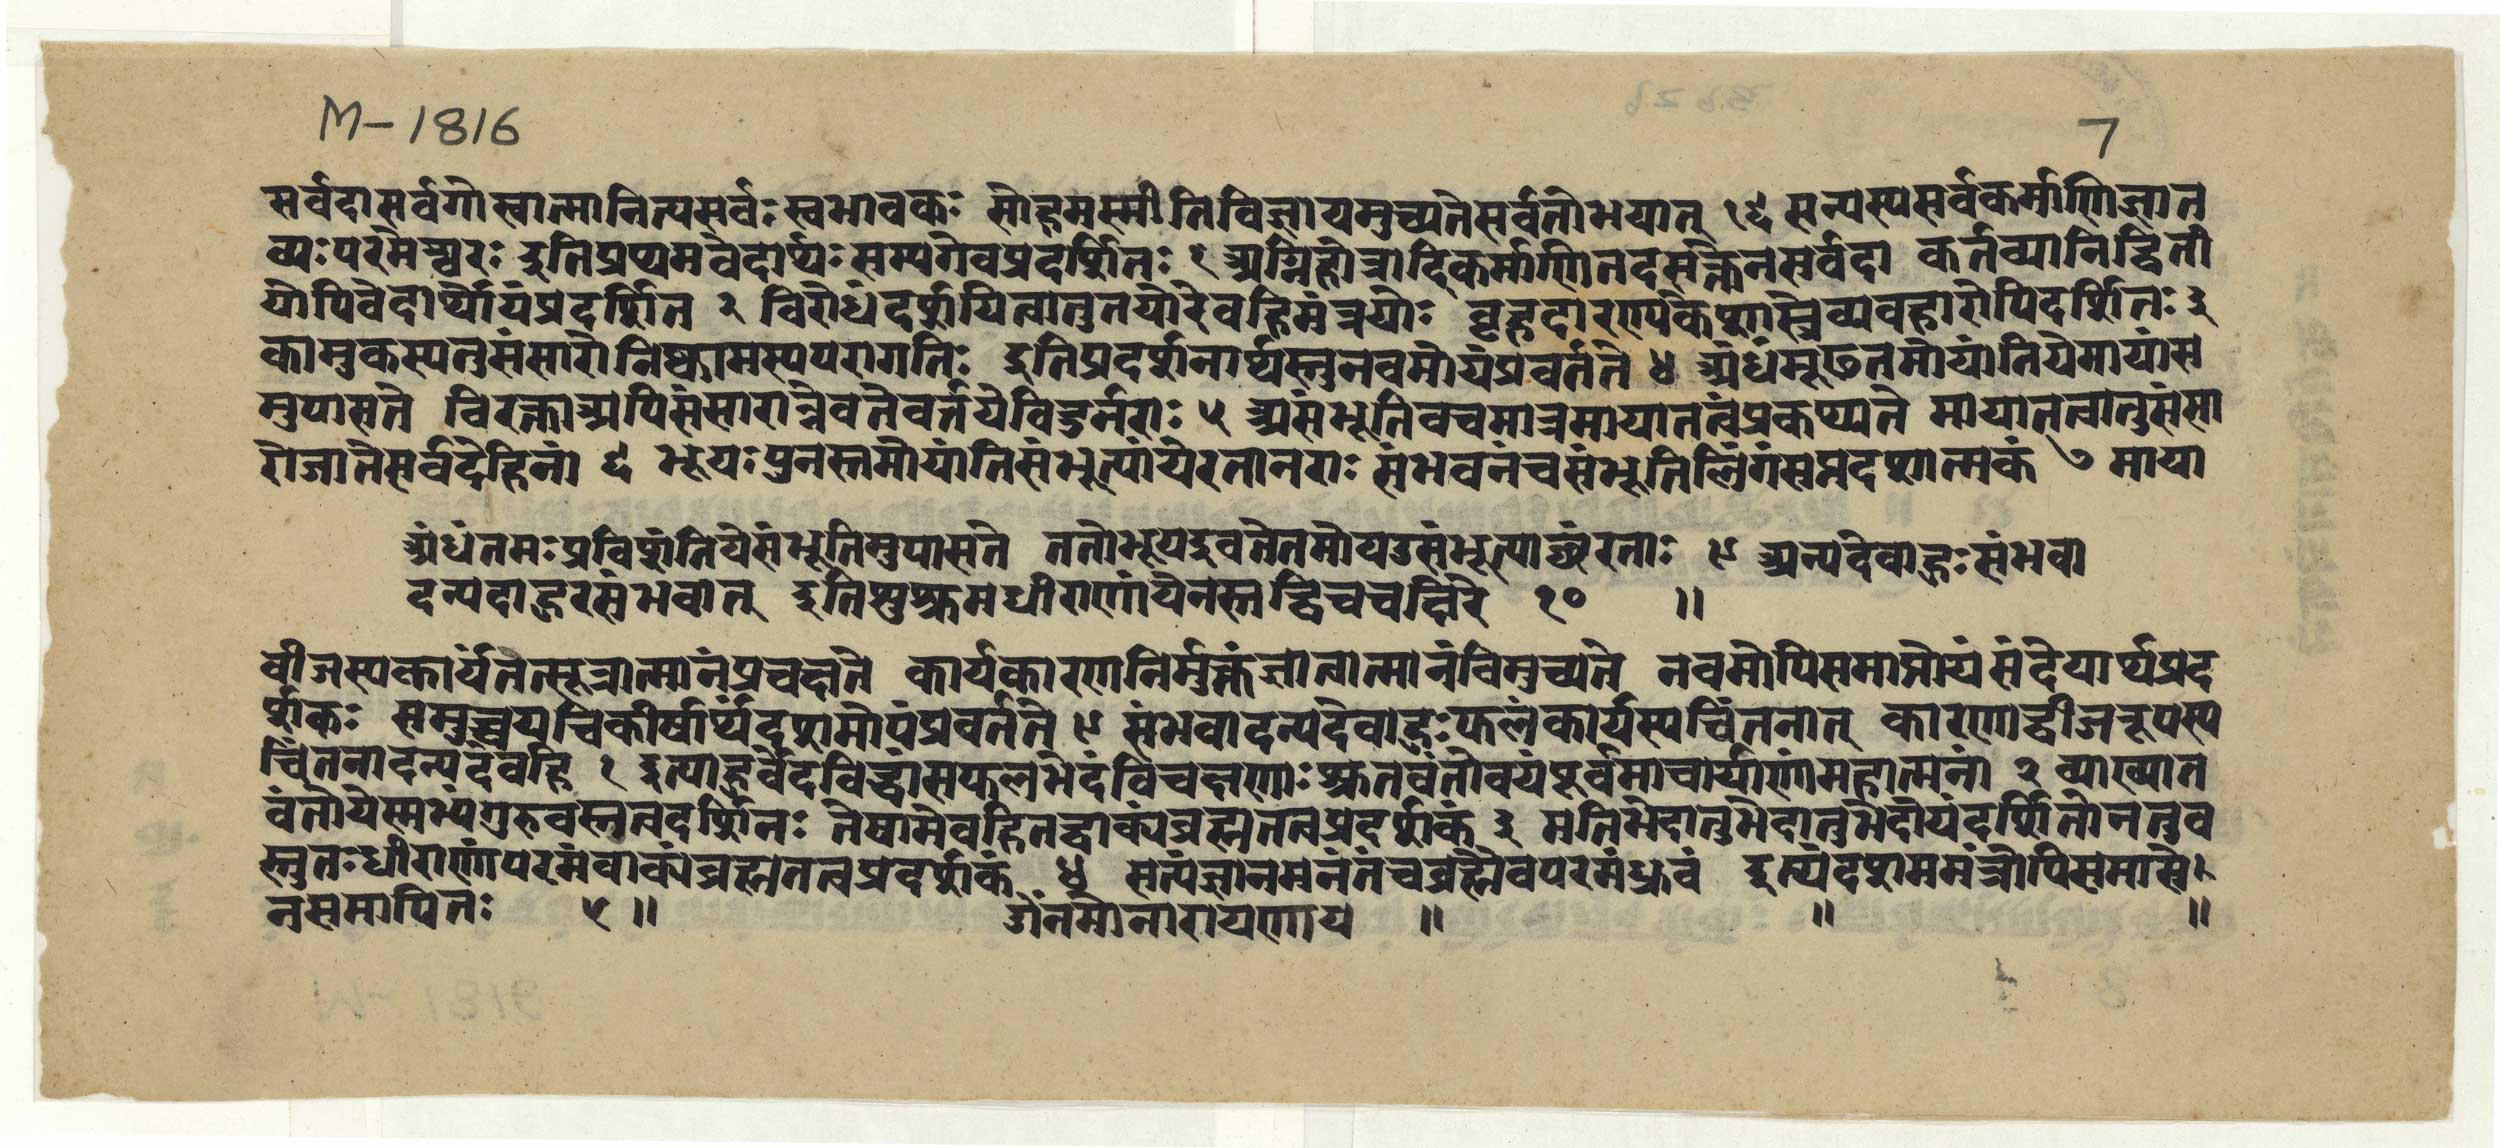 M-1816
7
सर्वदासर्वगोस्वात्मानित्यसर्वः स्वभावकः सोहमस्मीतिविज्ञायमुच्यतेसर्वतोभयात् १६ सन्यस्यसर्वकर्माणिज्ञात
व्यः परमेश्वरः इतिप्रथमवेदार्थः सम्यगेवप्रदर्शितः १ अग्निहोत्रादिकर्माणीतदसक्तेनसर्वदा कर्तव्यानिद्विती
योपिवेदार्थोयंप्रदर्शित २ विरोधंदर्शयित्वातुतयोरेवहिमंत्रयोः बृहदारण्यकेशास्त्रेव्यवहारोपिदर्शितः ३
कामुकस्यतुसंसारोनिष्कामस्यपरागतिः इतिप्रदर्शनार्थस्तुनवमोयंप्रवर्तते ४ अंधंमूढतमोयांतियेमायांस
मुपासते विरक्ताअपिसंसारान्नैवतेवर्तयेविदुर्नराः ५ असंभूतिवचमात्रमायातत्वंप्रकथ्यते मायातत्वात्तुसंसा
रोजातेसर्वदेहिनां ६ भूयः पुनस्तमोयांतिसंभूत्यांयेरतानराः संभवनंचसंभूतिलिंगंसप्तदशात्मकं ७ माया
अंधंतमः प्रविशंतियेसंभूतिमुपासते ततोभूयइवतेतमोयउसंभूत्याꣳरताः ९ अन्यदेवाहुः संभवा
दन्यदाहुरसंभवात् इतिशुश्रुमधीराणांयेनस्तद्विचचक्षिरे १० ॥
बीजस्यकार्यंतत्सूत्रात्मानंप्रचक्षते कार्यकारणनिर्मुक्तंज्ञात्वात्मानंविमुच्यते नवमोपिसमाप्तोयंसंदेयार्थप्रद
र्शकः समुच्चयचिकीर्षार्थंदशमोपंप्रवर्तते ९ संभवादन्यदेवाहुः फलंकार्यस्यचिंतनात् कारणाद्बीजरूपस्य
चिंतनादन्यदेवहि १ इत्याहुर्वेदविद्वांसफलभेदंविचक्षणाः श्रुतवंतोवयंपूर्वमाचार्याणांमहात्मनां २ व्याख्यात
वंतोयेस्मभ्यंगुरुवस्तत्वदर्शिनः तेषामेवहितद्वाक्यंब्रह्मतत्वप्रदर्शकं ३ मतिभेदात्तुभेदात्तुभेदोयंदर्शितोनतुव
स्तुतः धीराणांपरमंवाक्यंब्रह्मतत्वप्रदर्शकं ४ सत्यंज्ञानमनंतंचब्रह्मैवपरमंध्रुवं इत्यंदशममंत्रोपिसमासे
नसमापितः ५ ॥ ॐनमोनारायणाय ॥ ॥ ॥